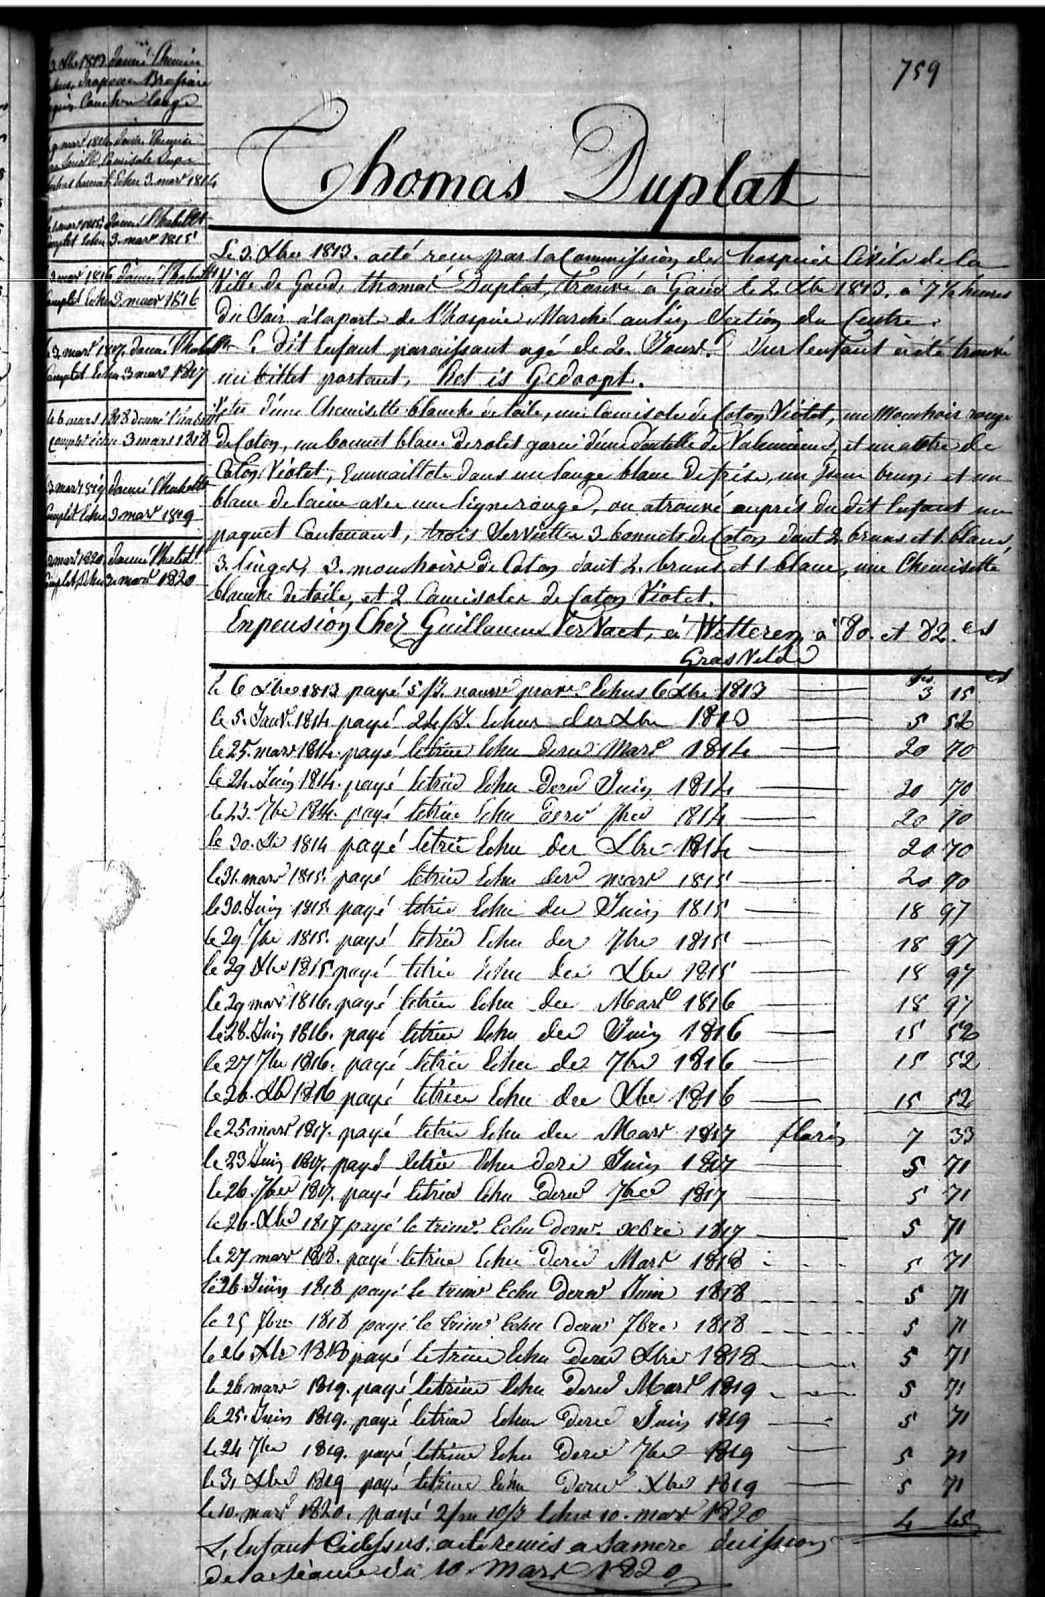 759
Thomas Duplat
Le 3. Xbre 1813. a été reçu par la Commission des hospices Civils de la
Ville de Gand, thomas Duplat, trouvé à Gand le 2. Xbre 1813. à 7 ½ heures
du Soir à la porte de l'hospice Marché au lin Section du Centre.
Le dit Enfant paraissant agé de 2. Jours. Sur l'enfant a été trouvé
un billet portant, Het is Gedoopt.
Vetu d'une Chemisette blanche de toile, une Camisole de Coton Violet, un Mouchoir rouge
de Coton, un bonnet blanc garni d'une dentelle de Valenciennes, et un autre de
Coton Violet, Emmaillotté dans un lange blanc de frise, un Jaune brun, et un
blanc de laine avec une ligne rouge, on a trouvé auprès du dit Enfant un
paquet Contenant, trois Serviettes 3 bonnets de Coton dont 2. bruns et 1. blanc,
3. linges, 3. mouchoirs de Coton dont 2. bruns et 1 blanc, une Chemisette
blanche de toile, et 2 Camisoles de Coton Violet.
En pension Chez Guillaume VerVaet, à Wetteren à 80. et 82. es
GrasVelde
le 6 Xbre 1813 payé 5 fs. Echus 6 Xbre 1813 3 15
le 5. Janv. 1814 payé 24 Echus der Xbre 1813 5 52
le 25. mars 1814. payé le trim Echu dern Mars 1814 20 70
le 24. Juin 1814. payé le trim Echu Dern Juin 1814 20 70
le 23. 7bre 1814. payé le trim Echu Dern 7bre 1814 20 70
le 30. Xbre 1814 payé le trim Echu der Xbre 1814 20 70
le 31. mars 1815. payé le trim Echu dern mars 1815 20 70
le 30. Juin 1815. payé le trim Echu der Juin 1815 18 97
le 29. 7bre 1815. payé le trim Echu der 7bre 1815 18 97
le 29 Xbre 1815 payé le trim Echu der Xbre 1815 18 97
le 29 mars 1816. payé le trim Echu der Mars 1816 18 97
le 28. Juin 1816. payé le trim Echu der Juin 1816 15 52
le 27 7bre 1816. payé le trim Echu der 7bre 1816 15 52
le 26. Xbre 1816 payé le trim Echu der Xbre 1816 15 52
le 25 mars 1817. payé le trim Echu der Mars 1817 florins 7 33
le 23 Juin 1817. payé le trim Echu dern Juin 1817 5 71
le 26. 7bre 1817. payé le trim Echu Dern 7bre 1817 5 71
le 26. Xbre 1817 payé le trim. Echu dern. xbre 1817 5 71
le 27 mars 1818. payé le trim Echu Dern Mars 1818 5 71
le 26 Juin 1818 payé le trim Echu Dern Juin 1818 5 71
le 25 7bre 1818 payé le trim Echu Dern 7bre 1818 5 71
le 26 Xbre 1818 payé le trim Echu Dern Xbre 1818 5 71
le 26 mars 1819. payé le trim Echu Dern Mars 1819 5 71
le 25. Juin 1819. payé le trim Echu Dern Juin 1819 5 71
le 24 7bre 1819. payé le trim Echu Dern 7bre 1819 5 71
le 31 Xbre 1819 payé le trim Echu Dern Xbre 1819 5 71
le 10. mars 1820. payé Echus 10. mars 1820 4 45
L'Enfant Ci dessus. a été remis a Sa mere
de la Séance du 10 Mars 1820
Echu 3. mars 1814
Complet Echu 3. mars 1815
3 mars 1816. Donné l'habillt
Complet Echu 3. mars 1816
le 3. mars 1817. Donné l'habillt
Complet Echu 3 mars 1817
le 6 mars 1818 donné l'habillt
Complet Echu 3 mars 1818
3 mars 1819 Donné l'habillt
Complet Echu 3 mars 1819
mars 1820. Donné l'habillt
Complet Echu 3 mars 1820